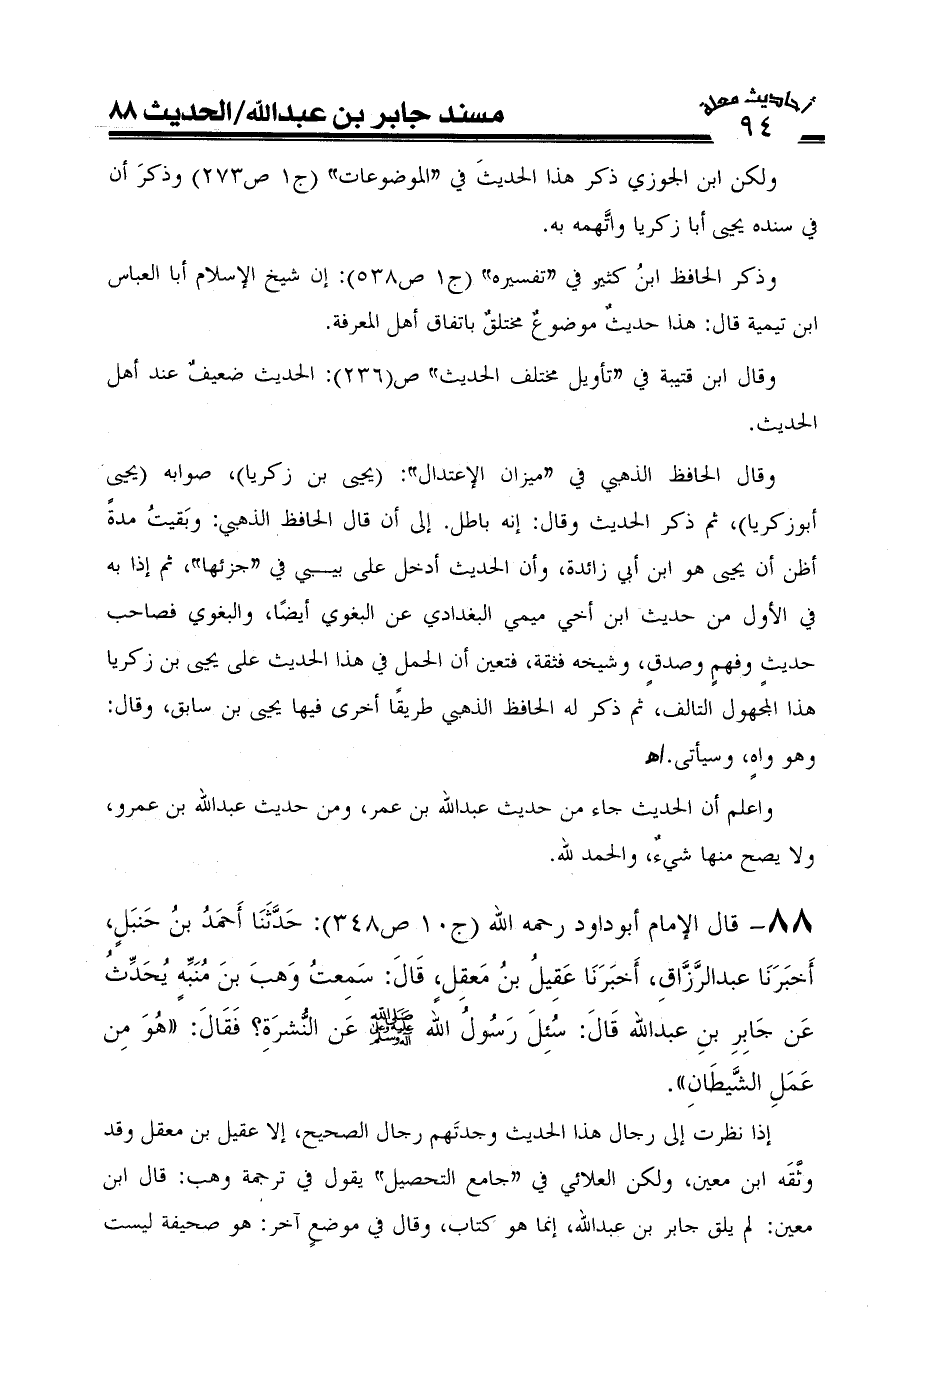 أحاديث معلة
٩٤
مسند جابر بن عبدالله/الحديث ٨٨
ولكن ابن الجوزي ذكر هذا الحديثَ في «الموضوعات» (ج١ ص٢٧٣) وذكرَ أن
في سنده يحيى أبا زكريا واتَّهمه به.
وذكر الحافظ ابنُ كثير في «تفسيره» (ج١ ص٥٣٨): إن شيخ الإسلام أبا العباس
ابن تيمية قال: هذا حديثٌ موضوعٌ مختلقٌ باتفاق أهل المعرفة.
وقال ابن قتيبة في «تأويل مختلف الحديث» ص(٢٣٦): الحديث ضعيفٌ عند أهل
الحديث.
وقال الحافظ الذهبي في «ميزان الإعتدال»: (يحيى بن زكريا)، صوابه (يحيى
أبوزكريا)، ثم ذكر الحديث وقال: إنه باطل. إلى أن قال الحافظ الذهبي: وبَقيتُ مدةً
أظن أن يحيى هو ابن أبي زائدة، وأن الحديث أدخل على بيـــبي في «جزئها»، ثم إذا به
في الأول من حديث ابن أخي ميمي البغدادي عن البغوي أيضًا، والبغوي فصاحب
حديثٍ وفهمٍ وصدقٍ، وشيخه فثقة، فتعين أن الحمل في هذا الحديث على يحيى بن زكريا
هذا المجهول التالف، ثم ذكر له الحافظ الذهبي طريقًا أخرى فيها يحيى بن سابق، وقال:
وهو واهٍ، وسيأتى./ﻫ
واعلم أن الحديث جاء من حديث عبدالله بن عمر، ومن حديث عبدالله بن عمرو،
ولا يصح منها شيءٌ، والحمد لله.
٨٨- قال الإمام أبوداود رحمه الله (ج١٠ ص٣٤٨): حَدَّثَنَا أَحمَدُ بنُ حَنبَلٍ،
أَخبَرَنَا عبدالرَّزَّاقِ، أَخبَرَنَا عَقِيلُ بنُ مَعقِلٍ، قَالَ: سَمِعتُ وَهبَ بنَ مُنَبِّهٍ يُحَدِّثُ
عَن جَابِرِ بنِ عبدالله قَالَ: سُئِلَ رَسُولُ الله ﷺ عَن النُّشرَةِ؟ فَقَالَ: «هُوَ مِن
عَمَلِ الشَّيطَانِ».
إذا نظرت إلى رجال هذا الحديث وجدتَهم رجال الصحيح، إلا عقيل بن معقل وقد
وثَّقَه ابن معين، ولكن العلائي في «جامع التحصيل» يقول في ترجمة وهب: قال ابن
معين: لم يلق جابر بن عبدالله، إنما هو كتاب، وقال في موضعٍ آخر: هو صحيفة ليست